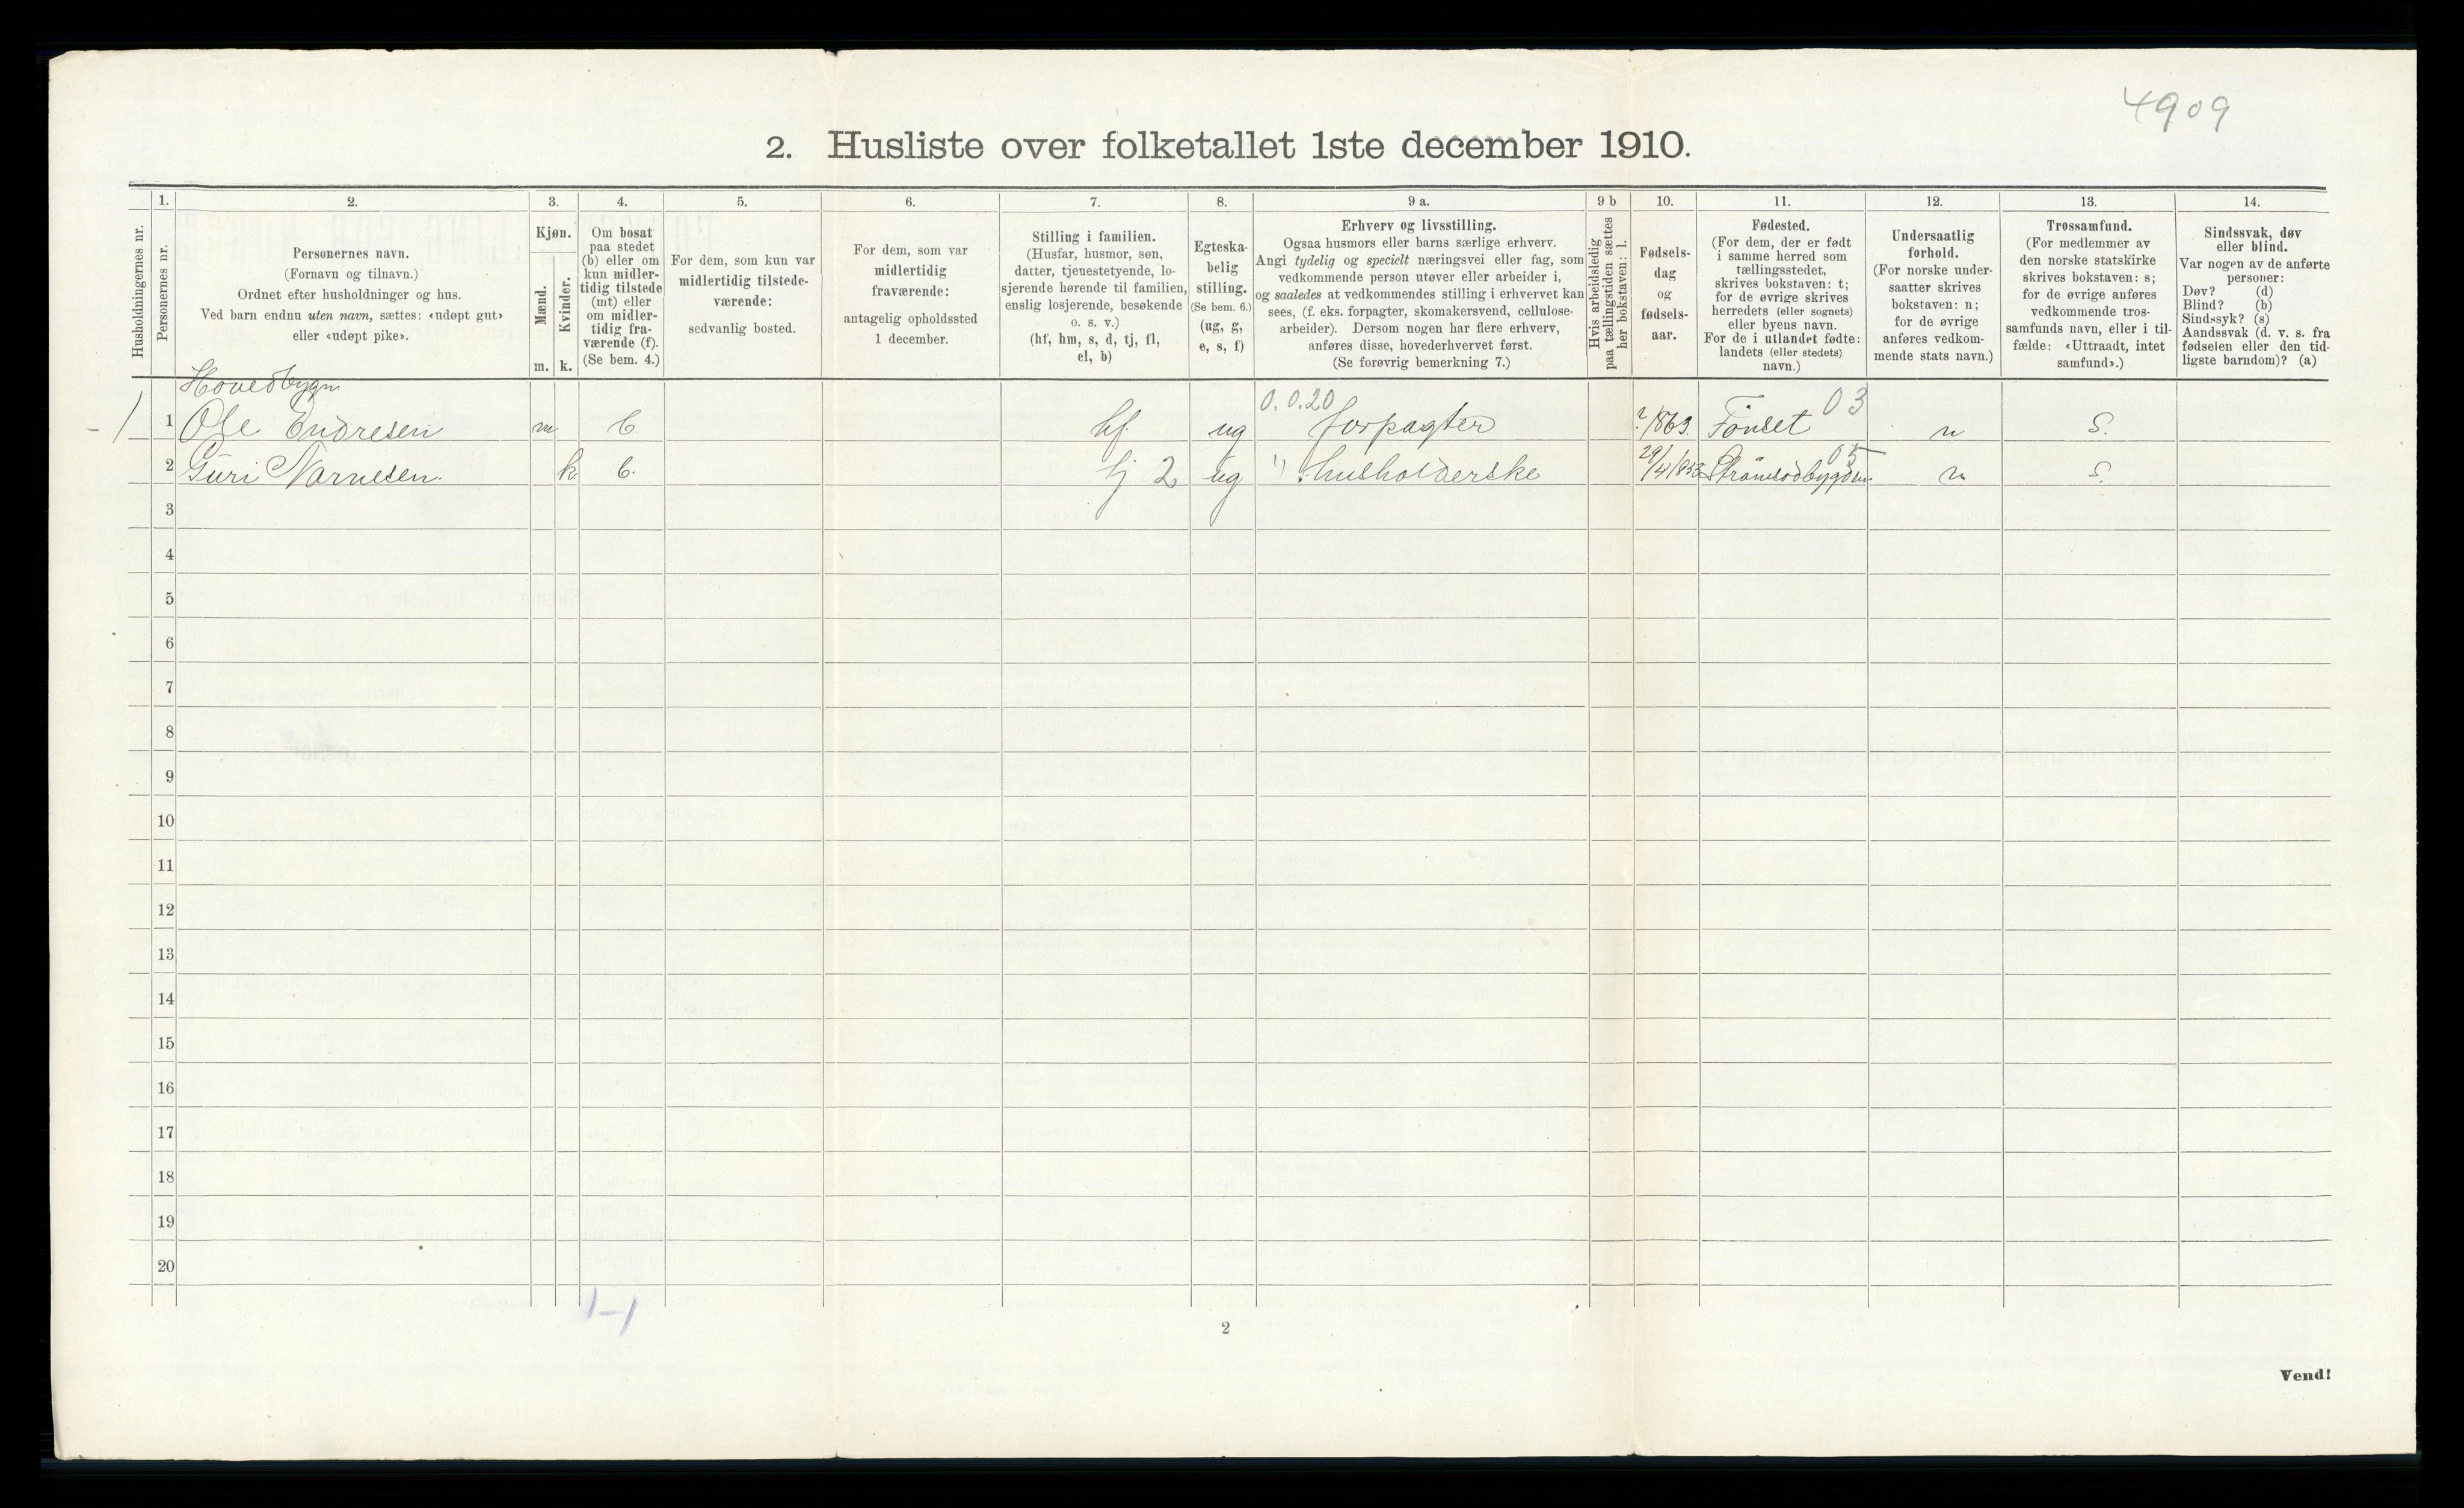 4909
2. Husliste over folketallet 1ste december 1910.
Husholdningernes nr.
1.
Personernes nr.
2.
Personernes navn.
(Fornavn og tilnavn.)
Ordnet efter husholdninger og hus.
Ved barn endnu uten navn, sættes: «udøpt gut»
eller «udøpt pike».
3.
Kjøn.
Mænd.
m.
Kvinder.
k.
4.
Om bosat
paa stedet
(b) eller om
kun midler-
tidig tilstede
(mt) eller
om midler-
tidig fra-
værende (f).
(Se bem. 4.)
5.
For dem, som kun var
midlertidig tilstede-
værende:
sedvanlig bosted.
6.
For dem, som var
midlertidig
fraværende:
antagelig opholdssted
1 december.
7.
Stilling i familien.
(Husfar, husmor, søn,
datter, tjenestetyende, lo-
sjerende hørende til familien,
enslig losjerende, besøkende
o. s. v.)
(hf, hm, s, d, tj, fl,
el, b)
8.
Egteska-
belig
stilling.
(Se bem. 6.)
(ug, g,
e, s, f)
9 a.
Erhverv og livsstilling.
Ogsaa husmors eller barns særlige erhverv.
Angi tydelig og specielt næringsvei eller fag, som
vedkommende person utøver eller arbeider i,
og saaledes at vedkommendes stilling i erhvervet kan
sees, (f. eks. forpagter, skomakersvend, cellulose-
arbeider). Dersom nogen har flere erhverv,
anføres disse, hovederhvervet først.
(Se forøvrig bemerkning 7.)
9 b
Hvis arbeidsledig
paa tællingstiden sættes
her bokstaven: l.
10.
Fødsels-
dag
og
fødsels-
aar.
11.
Fødested.
(For dem, der er født
i samme herred som
tællingsstedet,
skrives bokstaven: t;
for de øvrige skrives
herredets (eller sognets)
eller byens navn.
For de i utlandet fødte:
landets (eller stedets)
navn.)
12.
Undersaatlig
forhold.
(For norske under-
saatter skrives
bokstaven: n;
for de øvrige
anføres vedkom-
mende stats navn.)
13.
Trossamfund.
(For medlemmer av
den norske statskirke
skrives bokstaven: s;
for de øvrige anføres
vedkommende tros-
samfunds navn, eller i til-
fælde: «Uttraadt, intet
samfund».)
14.
Sindssvak, døv
eller blind.
Var nogen av de anførte
personer:
Døv? (d)
Blind? (b)
Sindssyk? (s)
Aandssvak (d. v. s. fra
fødselen eller den tid-
ligste barndom)? (a)
Hovedbygn
1 Ole Endresen m b hf ug 0.0.20 forpagter ?/863. Tönset 03 n s.
2 Guri Narnesen. k b. tj 2 ug " husholderske 29/4/1853 Strömsödbygden 05 n s.
3
4
5
6
7
8
9
10
11
12
13
14
15
16
17
18
19
20
1-1
2
Vend!